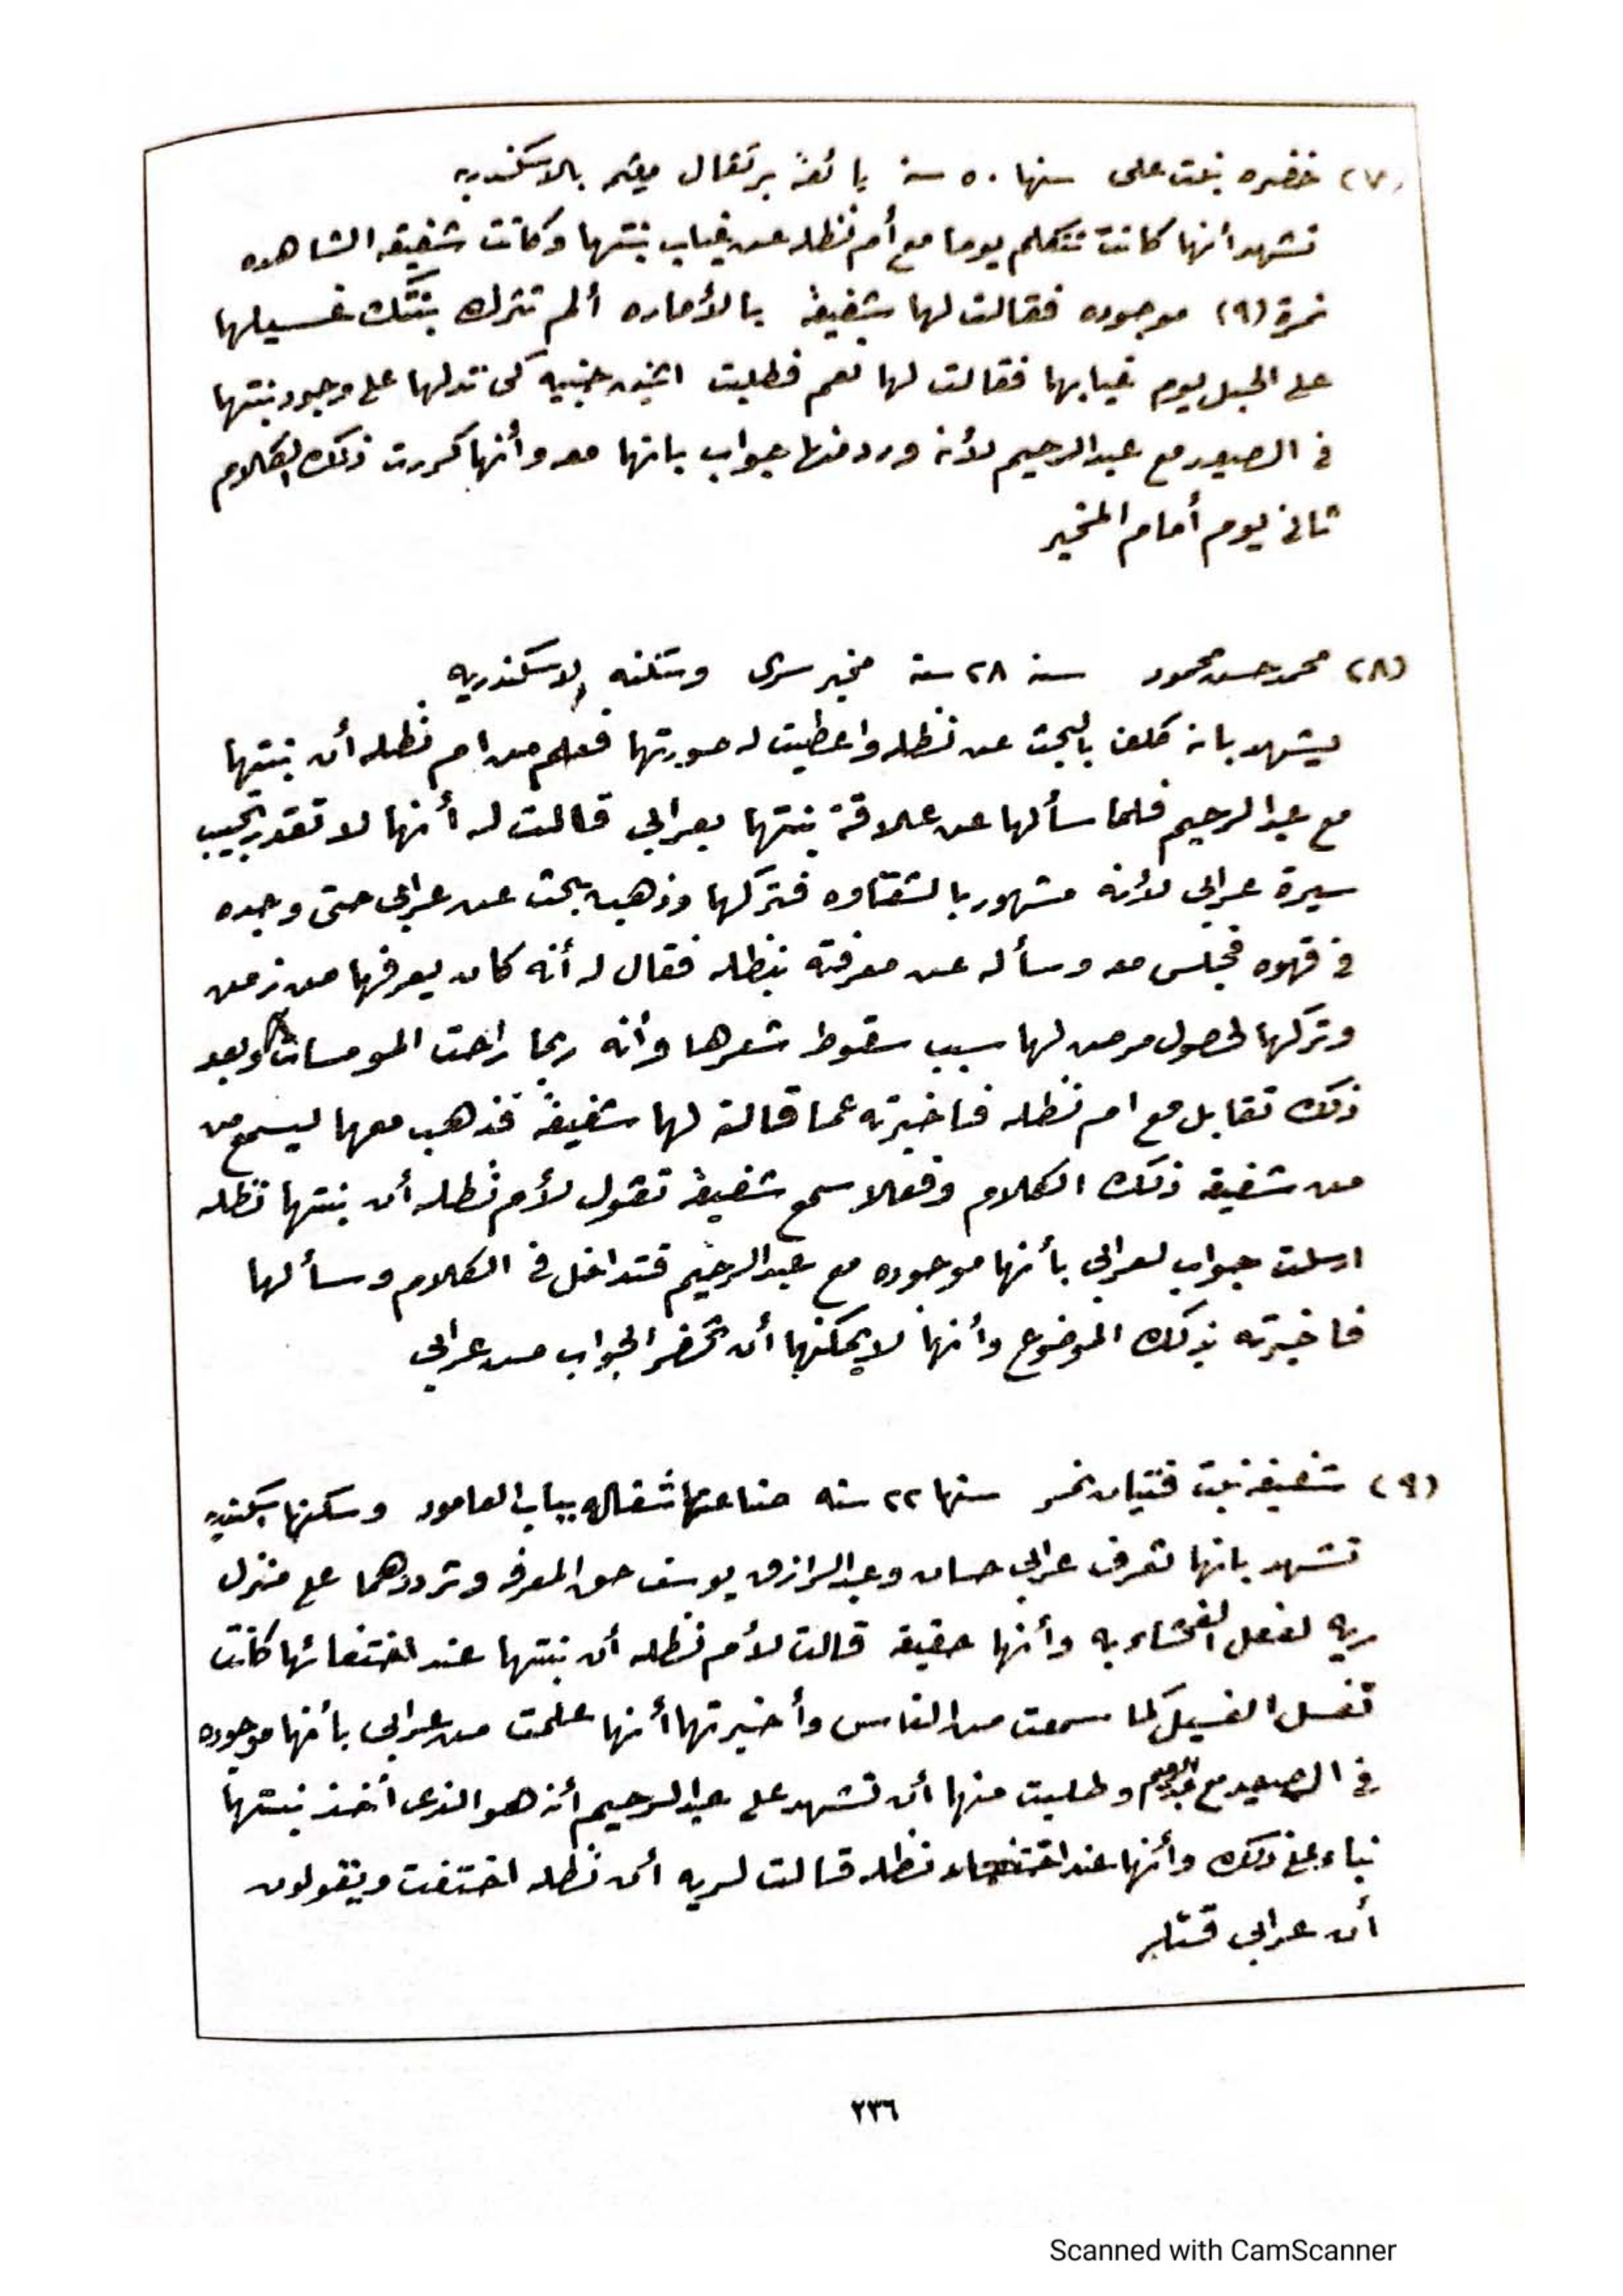 (٧) خضره بنت على سنها ٥٠ سنة بائعة برتقال مقيمه بالاسكندريه
تشهد أنها كانت تتكلم يوما مع أم نظله عن غياب بنتها وكانت شفيقه الشاهده
نمرة (٩) موجوده فقالت لها شفيقة بالأماره ألم تترك بنتك غسيلها
على الجبل يوم غيابها فقالت لها نعم فطلبت اثنين جنيه كى تدلها على وجود بنتها
فى الصعيد مع عبدالرحيم لأنه ورد منها جواب بانها معه وأنها كررت ذلك الكلام
ثانى يوم أمام المخبر
(٨) محمد حسن محمود سنه ٢٨ سنة مخبر سرى وسكنه الاسكندريه
يشهد بانه كلف بالبحث عن نظله واعطيت له صورتها فعلم من ام نظله أن بنتها
مع عبدالرحيم فلما سألها عن علاقة بنتها بعرابى قالت له أنها لا تقدر تجيب
سيرة عرابى لأنه مشهور بالشقاوه فتركها وذهب يبحث عن عرابى حتى وجده
فى قهوه فجلس معه وسأله عن معرفته بنظله فقال له أنه كان يعرفها من زمن
وتركها لحصول مرض لها سبب سقوط شعرها وأنه ربما راحت المومسات وبعد
ذلك تقابل مع ام نظله فاخبرته عما قالته لها شفيقة فذهب معها ليسمع من
من شفيقه ذلك الكلام وفعلا سمع شفيقة تقول لأم نظله أن بنتها نظله
ارسلت جواب لعرابى بأنها موجوده مع عبدالرحيم فتداخل فى الكلام وسألها
فاخبرته بذلك الموضوع وأنها لا يمكنها أن تحضر الجواب من عرابى
(٩) شفيقه بنت فتيان نمر سنها ٢٢ سنه صناعتها شغاله بباب العامود وسكنها اسكندريه
تشهد بانها تعرف عرابى حسان وعبدالرازق يوسف حق المعرفه وترددهما على منزل
ريه لفعل الفحشاء به وأنها حقيقه قالت لأم نظله أن بنتها عند اختفائها كانت
تغسل الغسيل كما سمعت من الناس وأخبرتها أنها علمت من عرابى بأنها موجوده
فى الصعيد مع عبدالرحيم وطلبت منها أن تشهد على عبدالرحيم أنه هو الذى أخذ بنتها
بناء على ذلك وأنها عند اختفاء نظله قالت لريه أن نظله اختفت ويقولون
أن عرابى قتلها
٢٣٦
Scanned with CamScanner